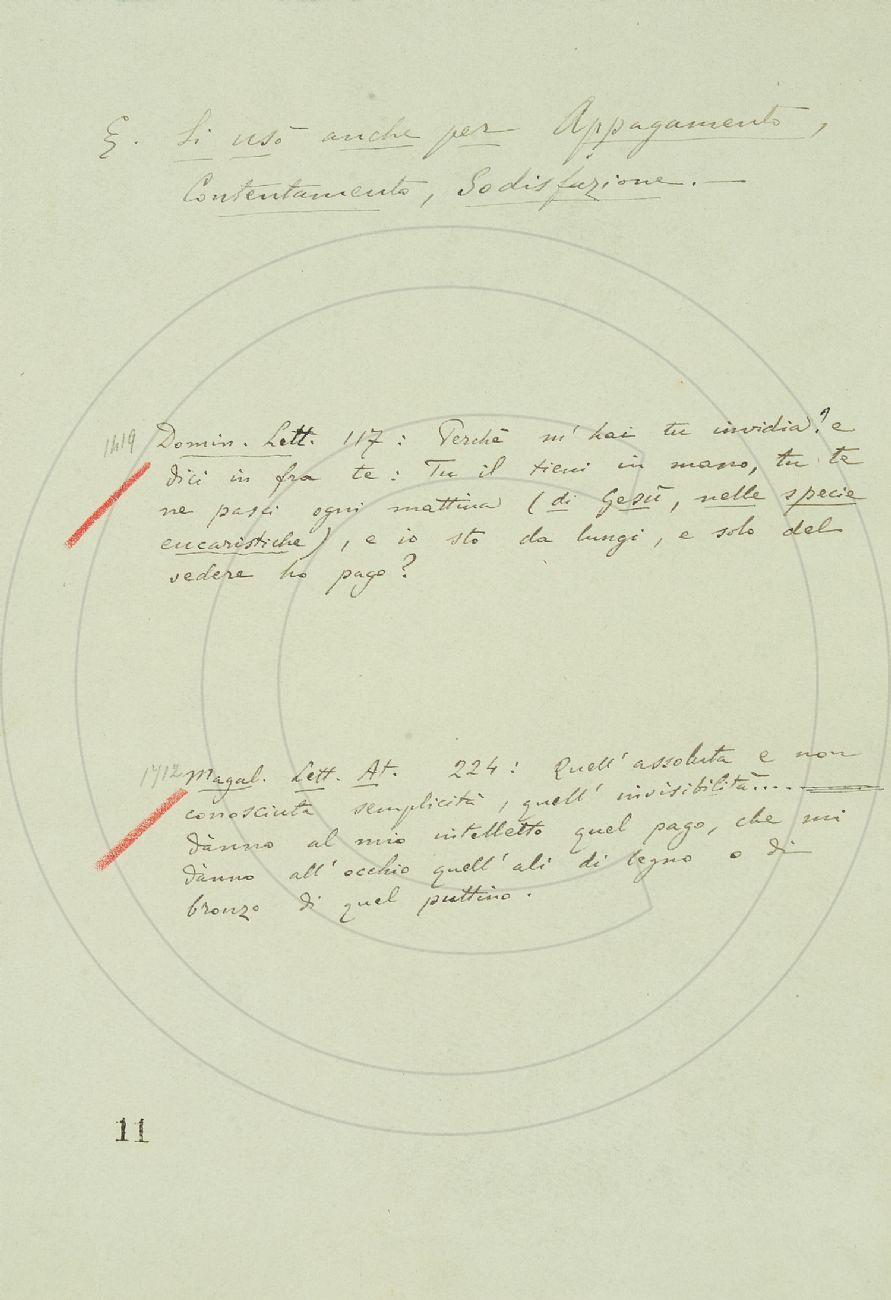 ξ. Si usò anche per Appagamento,
Contentamento, Sodisfazione. —
1419 Domin. Lett. 117: Perchè m' hai tu invidia? e
dici in fra te: Tu il tieni in mano, tu te
ne pasci ogni mattina (di Gesù, nelle specie
eucaristiche), e io sto da lungi, e solo del
vedere ho pago?
1712 Magal. Lett. At. 224: Quell' assoluta e non
conosciuta semplicità, quell' invisibilità....
dànno al mio intelletto quel pago, che mi
dànno all' occhio quell' ali di legno o di
bronzo di quel puttino.
11